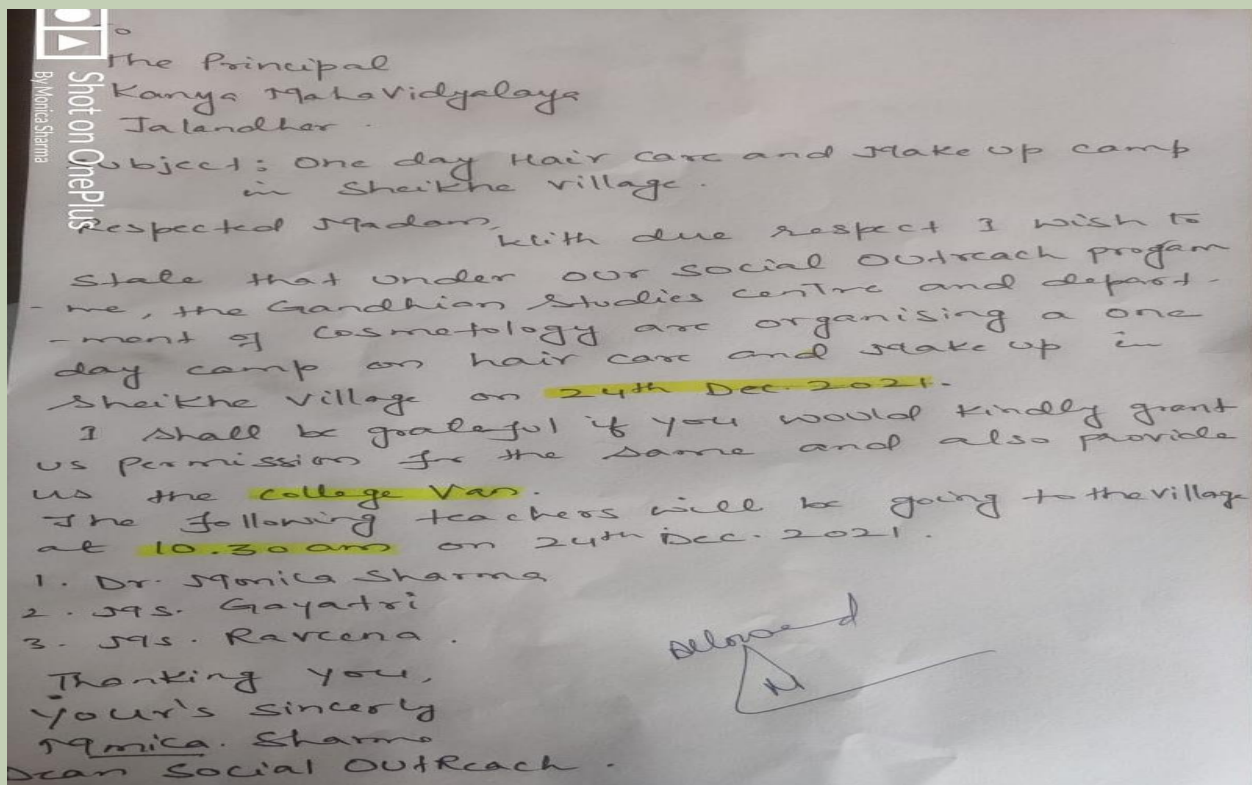 To
The Principal
Kanya MahaVidyalaya
Jalandhar.
Subject: One day Hair care and Make up camp
in Sheikhe village.
Respected Madam,
With due respect I wish to
state that under our social Outreach progam
-me, the Gandhian Studies centre and depart-
-ment of Cosmetology are organising a one
day camp on hair care and Make up in
Sheikhe Village on 24th Dec. 2021.
I shall be grateful if you would kindly grant
us permission for the same and also provide
us the college Van.
The following teachers will be going to the village
at 10.30 am on 24th Dec. 2021.
1. Dr. Monica Sharma
2. Ms. Gayatri
3. Ms. Raveena.
Allowed
Thanking you,
Your's sincerly
Monica. Sharma
Dean Social OutReach.
Shot on OnePlus
By Monica Sharma